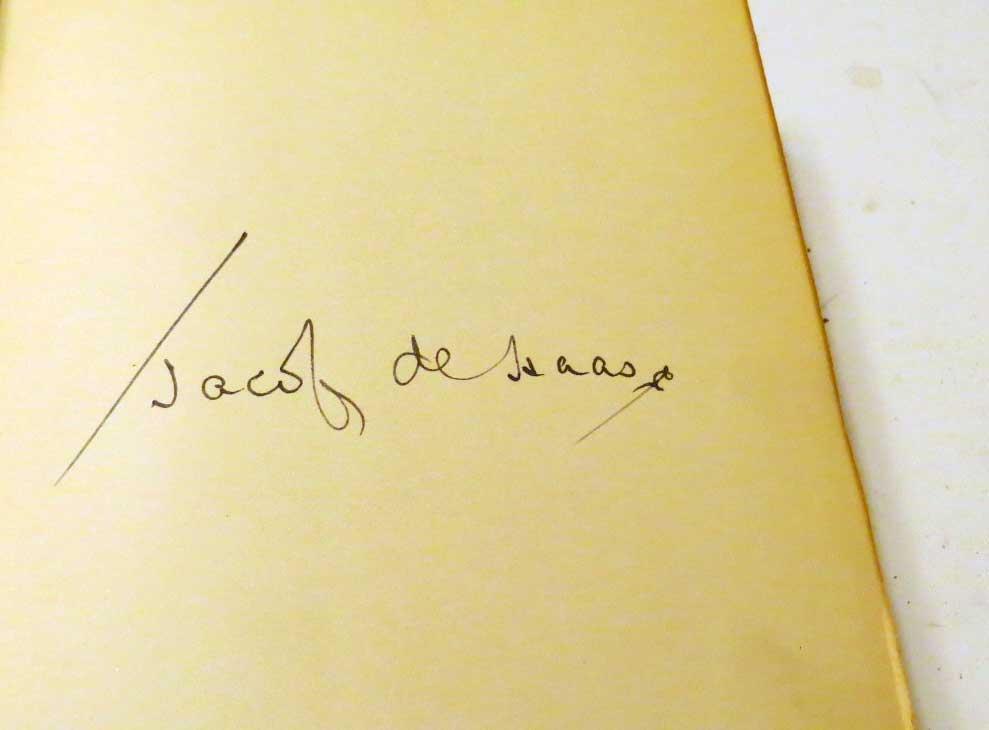 Jacob de Haas